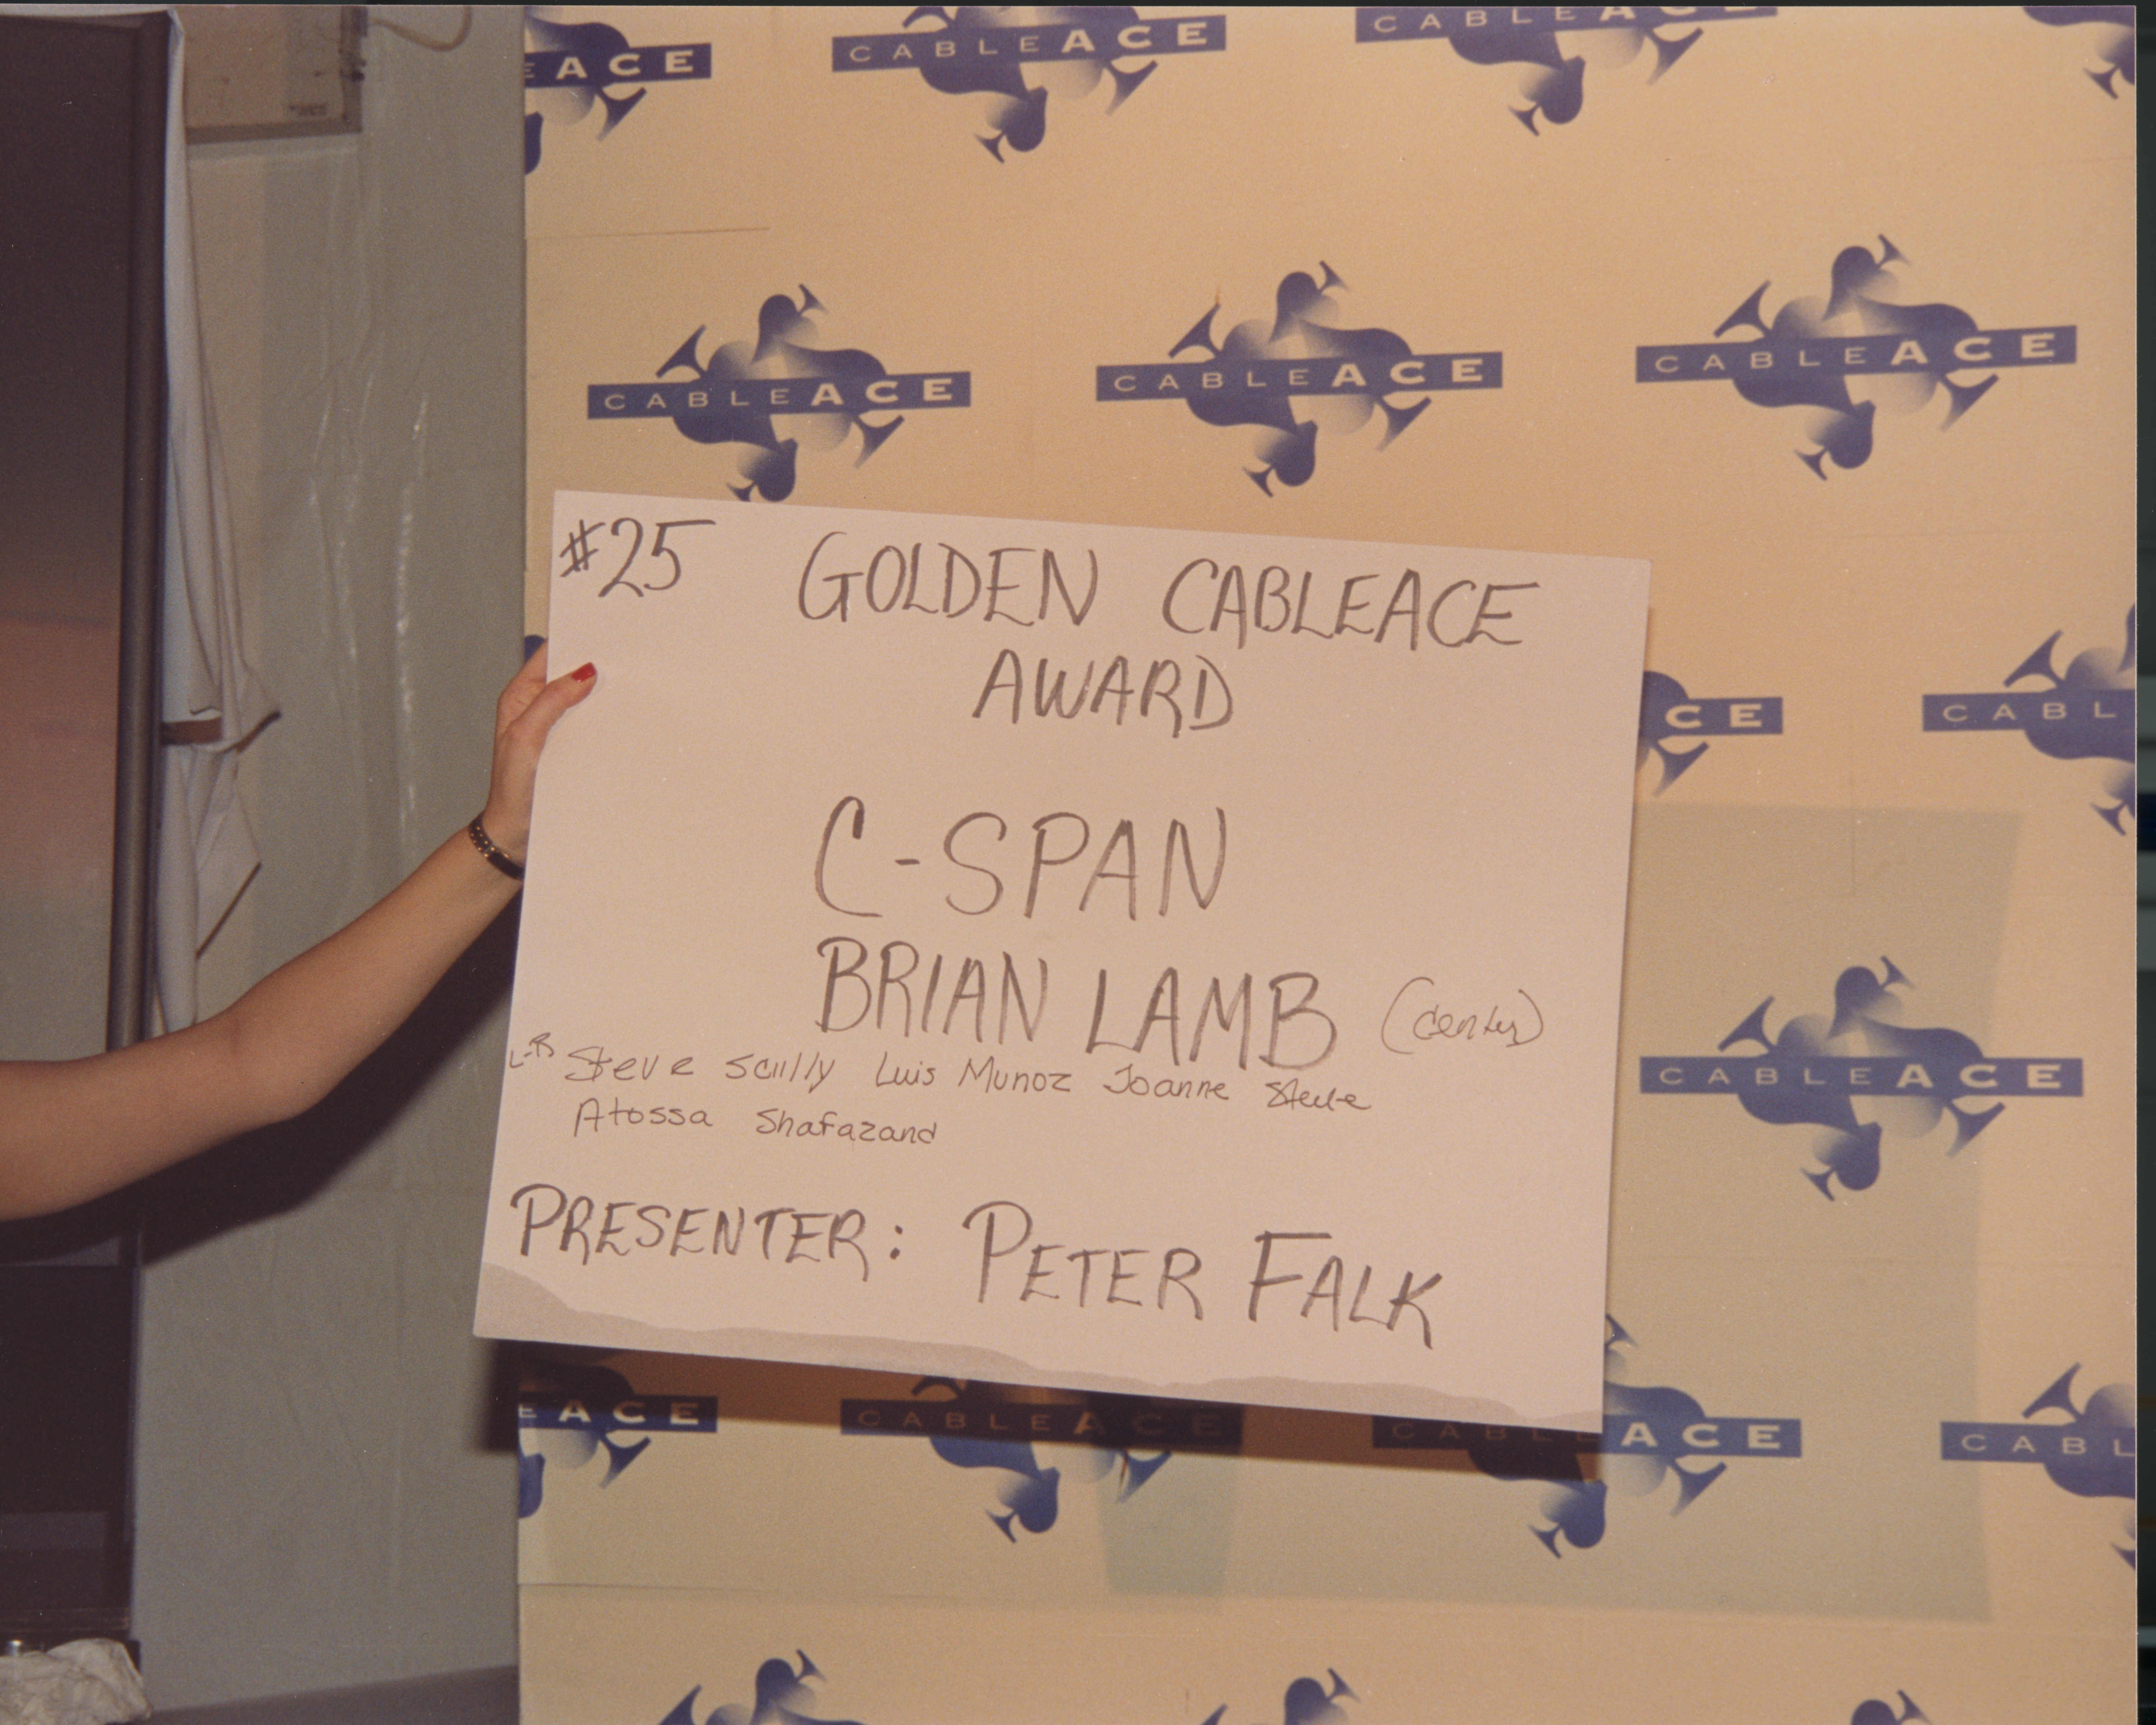 EACE
CABLEACE
CABLEACE
CABLEACE
CABLEACE
CABLEACE
#25 GOLDEN CABLEACE
AWARD
CE
CABL
C-SPAN
BRIAN LAMB (center)
L-R Steve Scully Luis Munoz Joanne Steele
Atossa Shafazand
CABLEACE
PRESENTER: PETER FALK
EACE
CABLEACE
CABLEACE
CABL